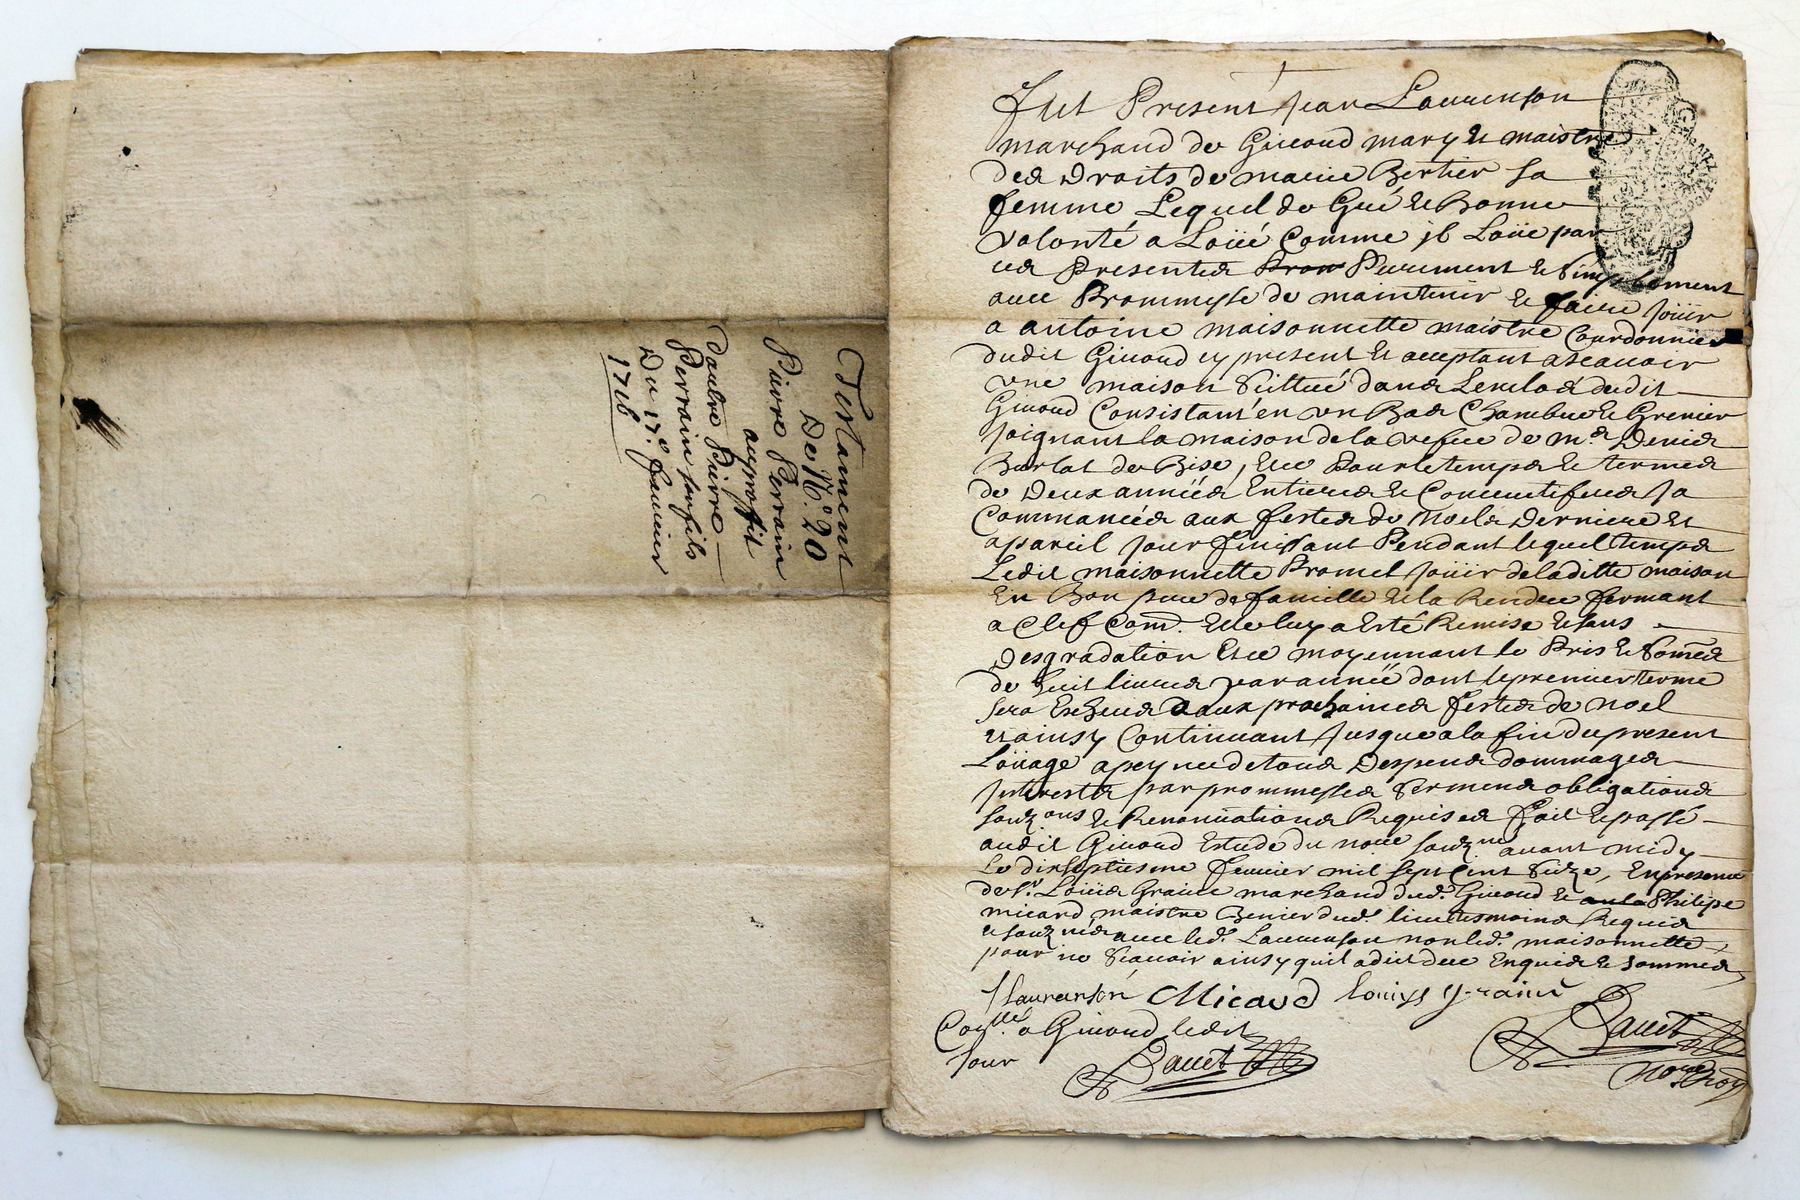 Testament
De No. 20
Pierre Perrain
au proffit
d'autre Pierre
Perrain son fils
Du 17e. fevrier
1716
Fut Present Jean Laurenson
marchand de Givord mary et maistre
des Droits de marie Bertier sa
femme Lequel de Gré et Bonne
volonté a Loüé Comme il Loüe par
ces Presentes Purement et Simplement
avec Prommesse de maintenir et faire Joüir
a antoine maisonnette maistre Courdonnier
dudit Givord cy present et acceptant ascavoir
une maison Scittué dans Lenclos dudit
Givord Consistant en un Bas Chambre et Grenier
Joignant la maison de la vefve de mr. Denis
de Bise, et ce Pour le temps et terme
de Deux années Entieres et Consecutifves Ja
Commancées aux festes de Noel Derniere et
a pareil Jour finissant Pendant lequel temps
Ledit maisonnette Promet Joüir de laditte maison
En Bon pere de famille et la Rendre fermant
a Clef Com. elle luy a Esté Remise et sans
Desgradation Et ce moyennant le Pris et Somme
de huit livres par année dont le premier terme
sera Escheu aux prochaines festes de Noel
et ainsy Continuant Jusque a la fin du present
Loüage a peyne de tous Despens dommages
Interests par prommesses Serments obligations
et Renontiations Requises fait et passé
audit Givord Estude du avant midy
Le dixseptiesme fevrier mil sept Cent Seize, En presence
de Sr. Loüis Graine marchand dud. Givord et Philipe
micard maistre dud. lieu tesmoins Requis
et avec led. Laurenson non led. maisonnette
pour ne Scavoir ainsy quil a dit de ce Enquis et Sommés
J Laurenson Micard Louys graine
a Givord ledit
Jour